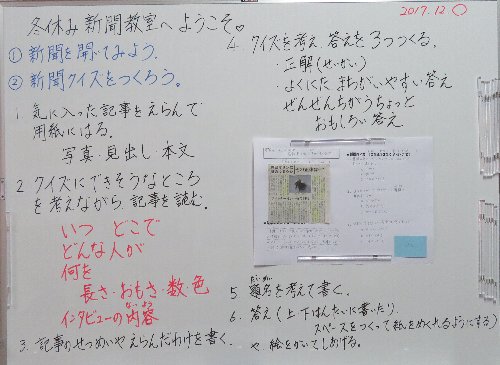 冬休み新聞教室へようこそ。
① 新聞を開いてみよう。
② 新聞クイズをつくろう。
1. 気に入った記事をえらんで
用紙にはる。
写真・見出し・本文
2. クイズにできそうなところ
を考えながら、記事を読む。
いつ どこで
どんな人が
何を
長さ・おもさ・数・色
インタビューの内容
ないよう
3. 記事のせつめいやえらんだわけを書く。
2017.12
4. クイズを考え、答えを3つつくる。
・正解(せいかい)
・よくにた まちがいやすい答え
ぜんぜんちがうちょっと
おもしろい答え
だいめい
5. 題名を考えて書く。
6. 答え(上下はんたいに書いたり、
スペースをつくって紙をめくれるようにする)
7. 絵をかいてしあげる。